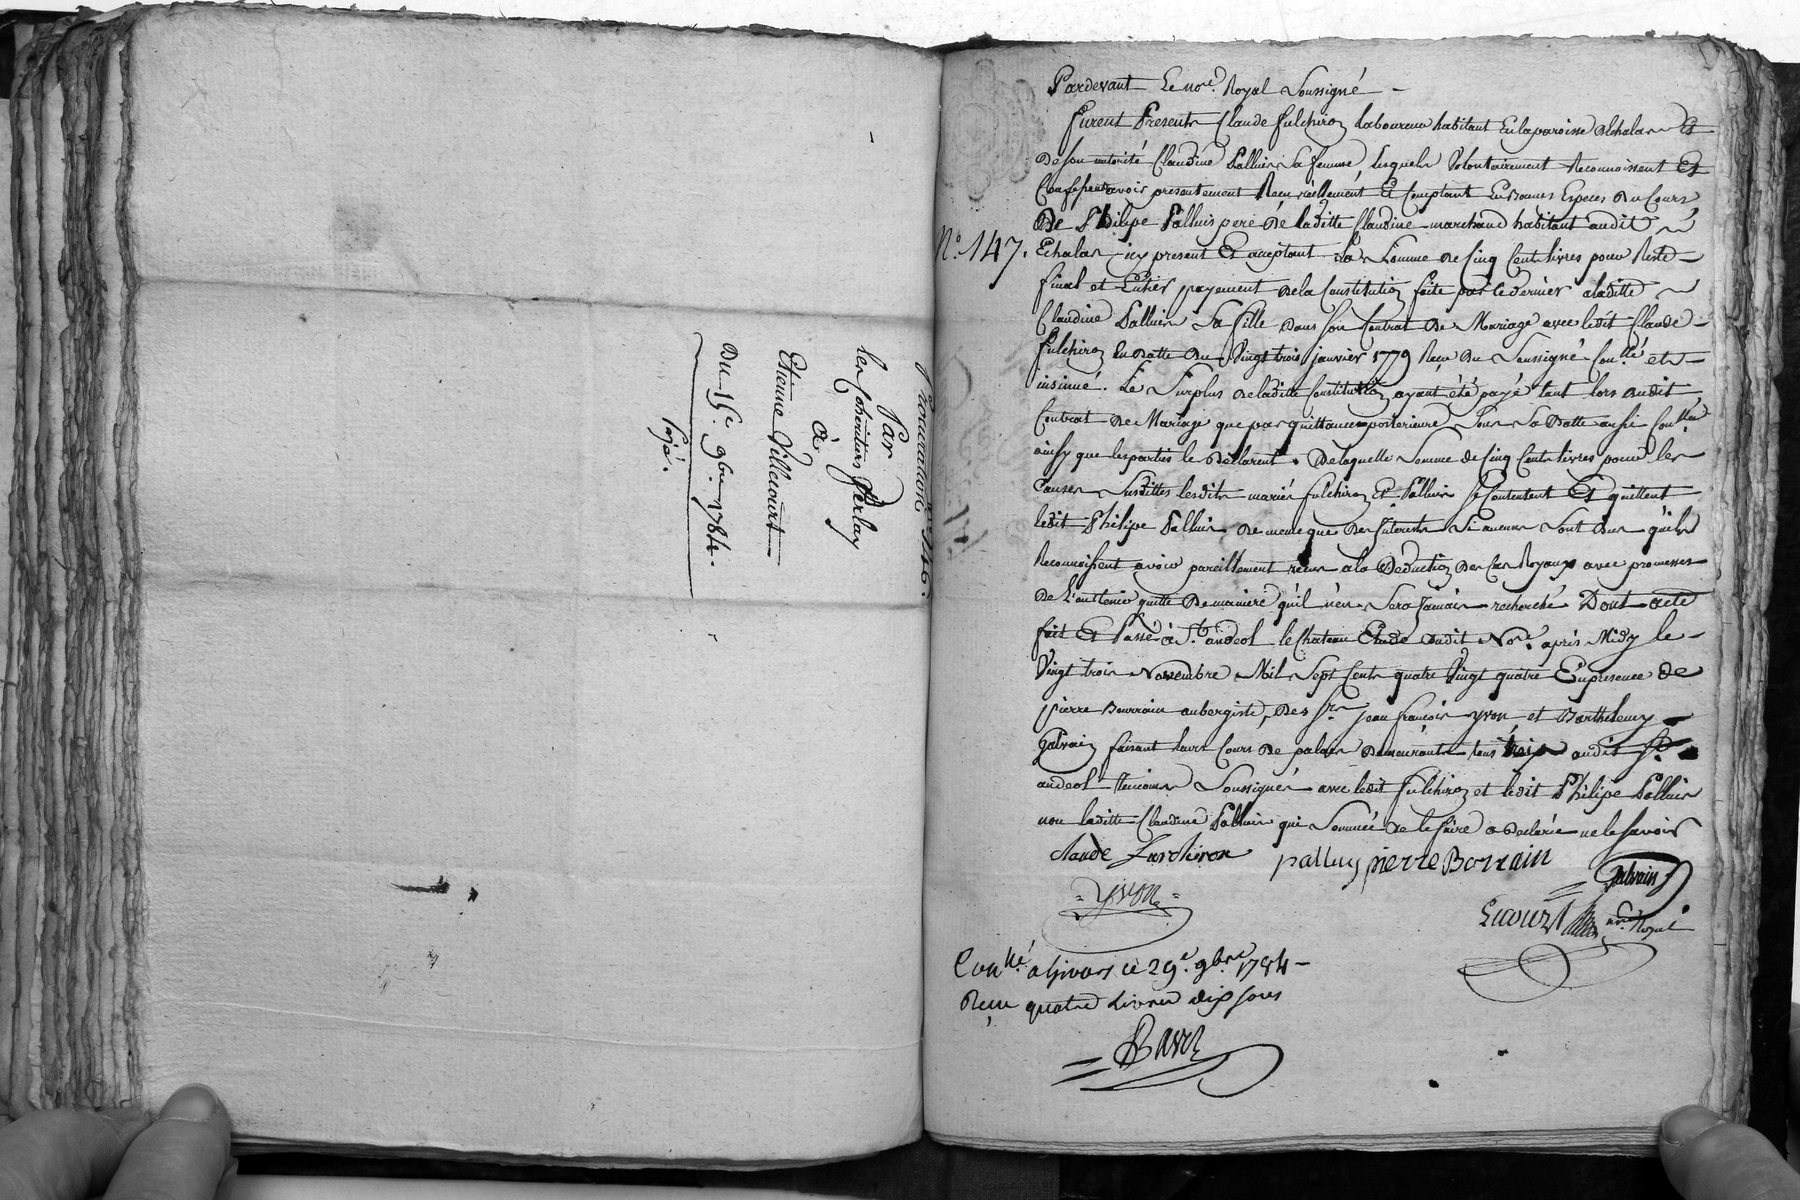 Procuration n.º 146.
Par
les cohéritiers Perlay
à
Etienne Villecourt
Du 15.e 9bre 1784.
Payé.
Pardevant Le no.re Royal Soussigné
furent Presents Claude fulchiron Laboureur habitant En la paroisse d'Echalas Et
de son autorité Claudine Palluis sa femme, lesquels Volontairement Reconnoissent Et
Confessent avoir presentement Recu réellement Et Comptant En Bonnes Especes du Cours
De Philipe Palluis pere de laditte Claudine marchand habitant audit
N.º 147.
Echalas icy present Et acceptant La Somme de Cinq Cents livres pour Reste
final et Entier payement de la Constitution faite par ce dernier a laditte
Claudine Palluis Sa fille dans son Contrat de Mariage avec ledit Claude
fulchiron En datte du Vingt trois janvier 1779 Recu du Soussigné Con.llé et
insinué. Le Surplus de laditte Constitution ayant été payé tant lors dudit
Contrat de Mariage que par quittances posterieures Sous Sa Datte aussi Con.llée
ainsy que les parties le Déclarent. De laquelle Somme de Cinq Cents livres pour les
Causes Susdittes lesdits mariés fulchiron Et Palluis se Contentent Et quittent
ledit Philipe Palluis de meme que des Interets Si aucuns Sont dus qu'ils
Reconnoissent avoir pareillement recus a la Déduction des Cas Royaux avec promesses
de L'en tenir quitte De maniere qu'il n'en Sera Jamais recherché Dont acte
fait Et Passé à S.t andeol le Chateau Etude dudit No.re après Midy le
Vingt trois Novembre Mil Sept Cents quatre Vingt quatre En presence de
pierre Bourrain aubergiste, des Srs jean françois yvon et Barthelemy
Galvain faisant leurs Cours de palais Demeurants tous trois audit St
andeol temoins Soussignés avec ledit fulchiron et ledit Philipe Palluis
non laditte Claudine Palluis qui Sommée de le faire a Déclaré ne le Savoir
claude Furchiron palluy pierre Borrain
Galvain
= yvon =
no.re Royal
Con.llé a Givors ce 29.e 9bre 1784
Recu quatre Livres dix sous